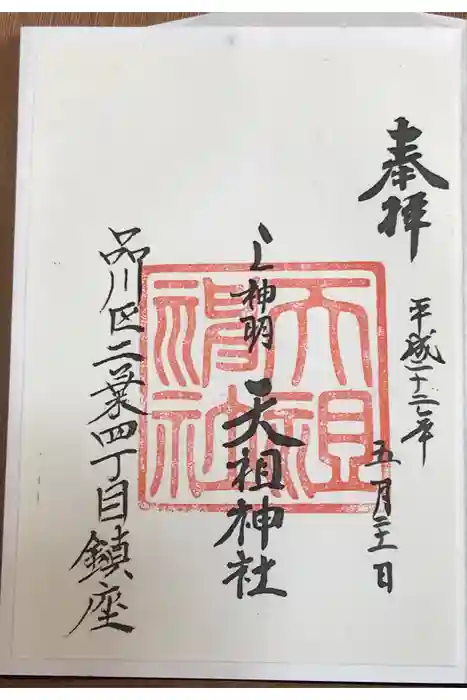 奉拝
平成二十七年
五月 日
上神明
天祖神社
品川区二葉四丁目鎮座
天祖
神社